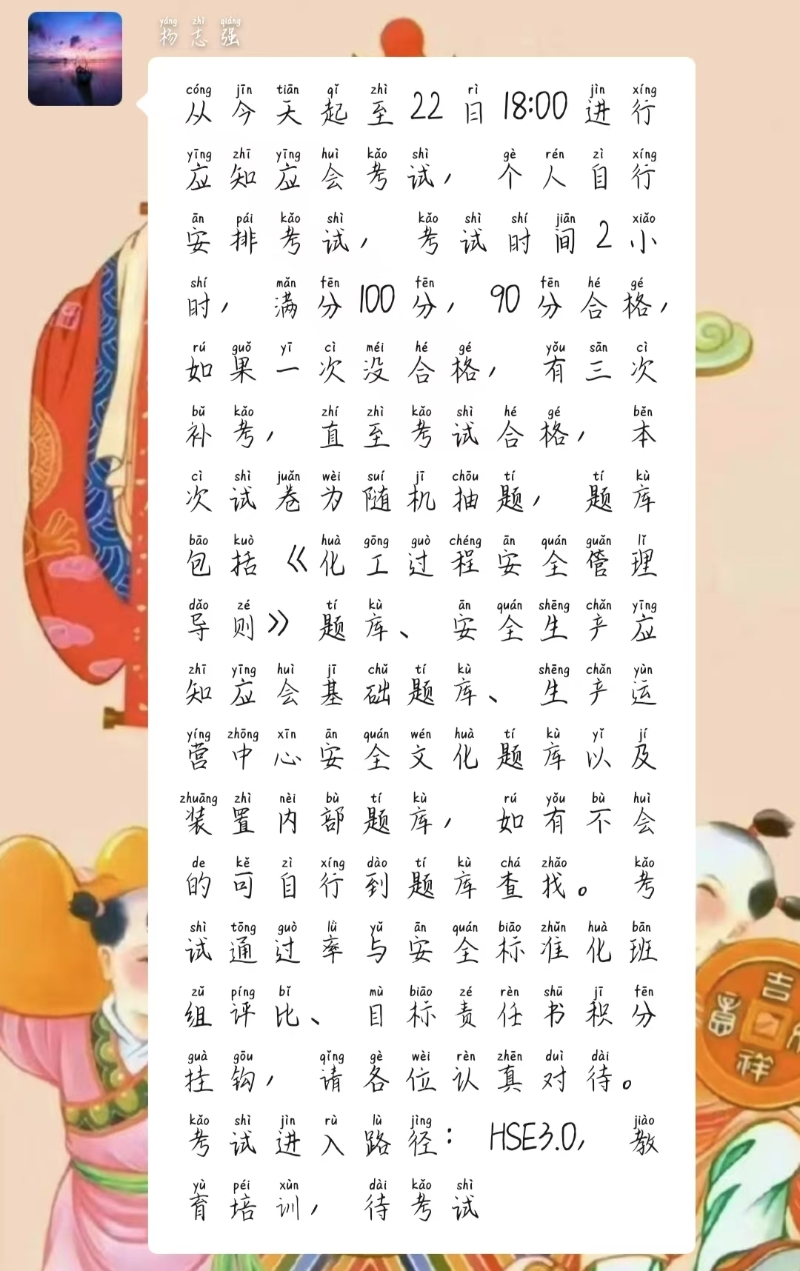 yáng zhì qiáng
杨志强
cóng jīn tiān qǐ zhì rì jìn xíng
从今天起至22日18:00进行
yīng zhī yīng huì kǎo shì gè rén zì xíng
应知应会考试，个人自行
ān pái kǎo shì kǎo shì shí jiān xiǎo
安排考试，考试时间2小
shí mǎn fēn fēn fēn hé gé
时，满分100分，90分合格，
rú guǒ yī cì méi hé gé yǒu sān cì
如果一次没合格，有三次
bǔ kǎo zhí zhì kǎo shì hé gé běn
补考，直至考试合格，本
cì shì juǎn wèi suí jī chōu tí tí kù
次试卷为随机抽题，题库
bāo kuò huà gōng guò chéng ān quán guǎn lǐ
包括《化工过程安全管理
dǎo zé tí kù ān quán shēng chǎn yīng
导则》题库、安全生产应
zhī yīng huì jī chǔ tí kù shēng chǎn yùn
知应会基础题库、生产运
yíng zhōng xīn ān quán wén huà tí kù yǐ jí
营中心安全文化题库以及
zhuāng zhì nèi bù tí kù rú yǒu bù huì
装置内部题库，如有不会
de kě zì xíng dào tí kù chá zhǎo kǎo
的可自行到题库查找。考
shì tōng guò lǜ yǔ ān quán biāo zhǔn huà bān
试通过率与安全标准化班
zǔ píng bǐ mù biāo zé rèn shū jī fēn
组评比、目标责任书积分
guà gōu qǐng gè wèi rèn zhēn duì dài
挂钩，请各位认真对待。
kǎo shì jìn rù lù jìng jiào
考试进入路径：HSE3.0，教
yù péi xùn dài kǎo shì
育培训，待考试
吉
祥